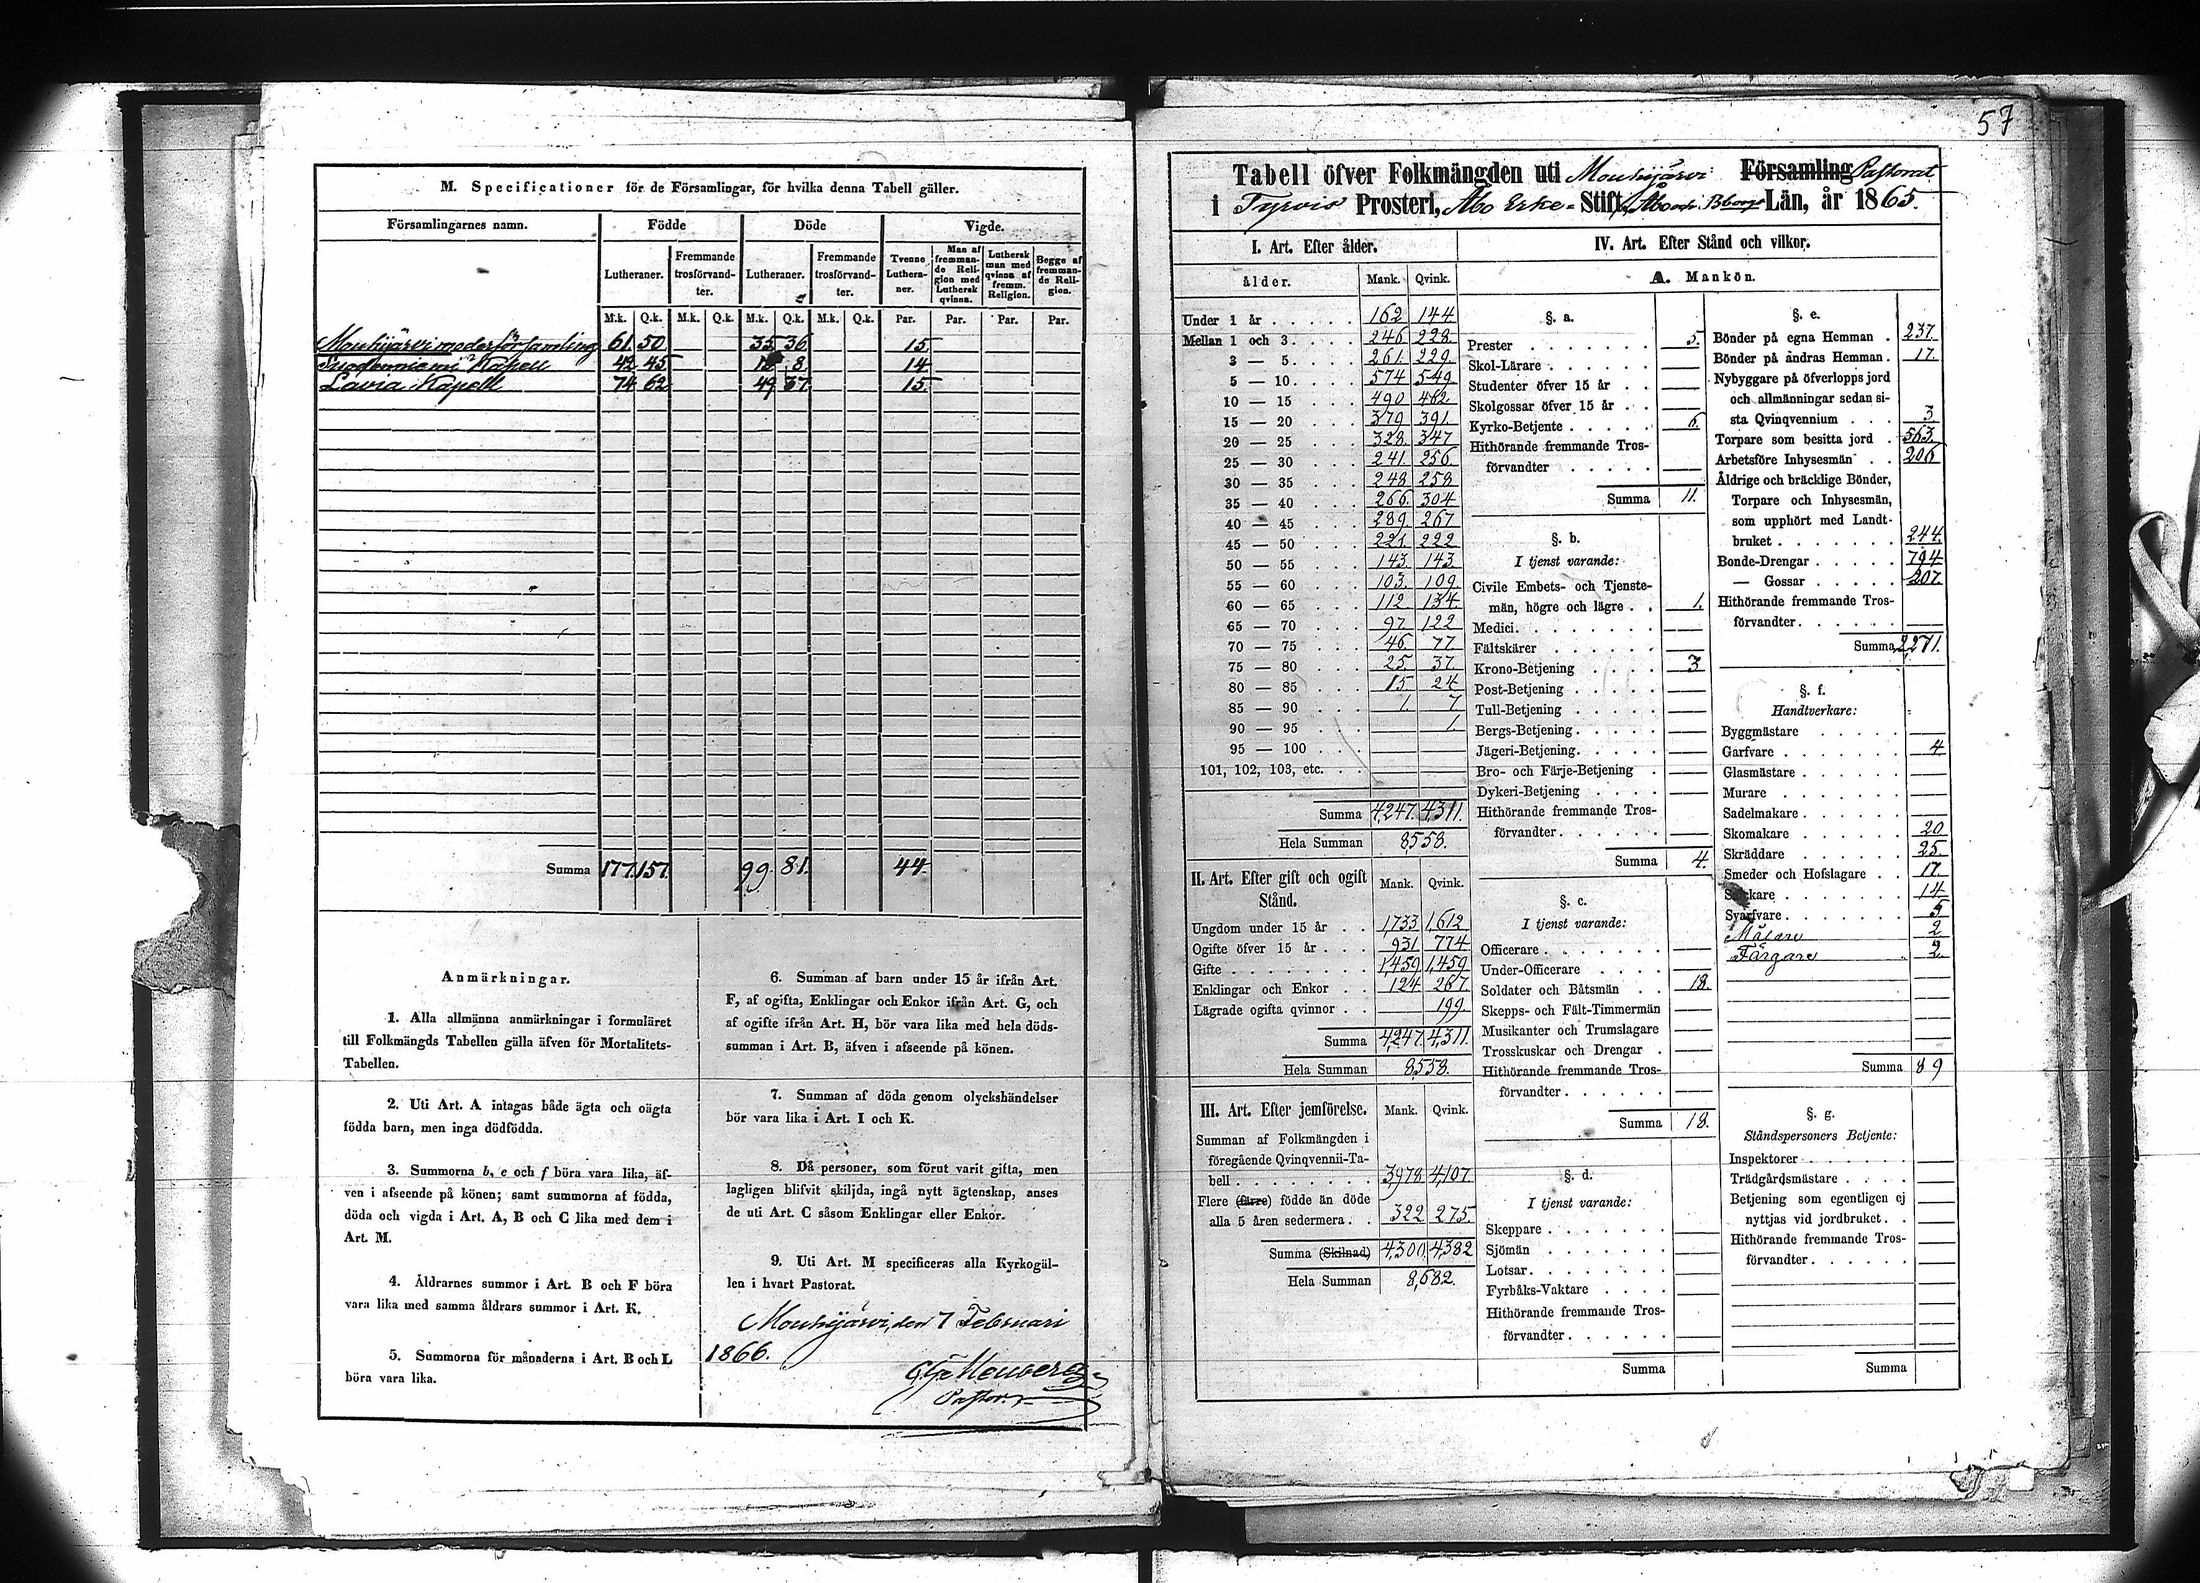 M. Specificationer för de Församlingar, för hvilka denna Tabell gäller.
Församlingarnes namn. Födde Döde Vigde.
Lutheraner. Fremmande trosförvandter. Lutheraner. Fremmande trosförvandter. Tvenne Lutheraner. Man af fremmande Religion med Luthersk qvinna. Luthersk man med qvinna af fremm. Religion. Begge af fremmande Religion.
M.k. Q.k. M.k. Q.k. M.k. Q.k. M.k. Q.k. Par. Par. Par. Par.
Mouhijärvi moderförsamling 61. 50 35 36 15.
Suodenniemi Kapell 42 45 8 14
Lavia Kapell 74 62 49 37 15.
Summa 177. 157. 99. 81. 44.
Anmärkningar.
1. Alla allmänna anmärkningar i formuläret
till Folkmängds Tabellen gälla äfven för Mortalitets-
Tabellen.
2. Uti Art. A intagas både ägta och oägta
födda barn, men inga dödfödda.
3. Summorna b, e och f böra vara lika, äf-
ven i afseende på könen; samt summorna af födda,
döda och vigda i Art. A, B och C lika med dem i
Art. M.
4. Åldrarnes summor i Art. B och F böra
vara lika med samma åldrars summor i Art. K.
5. Summorna för månaderna i Art. B och L
böra vara lika.
6. Summan af barn under 15 år ifrån Art.
F, af ogifta, Enklingar och Enkor ifrån Art. G, och
af ogifte ifrån Art. H, bör vara lika med hela döds-
summan i Art. B, äfven i afseende på könen.
7. Summan af döda genom olyckshändelser
bör vara lika i Art. I och K.
8. Då personer, som förut varit gifta, men
lagligen blifvit skiljda, ingå nytt ägtenskap, anses
de uti Art. C såsom Enklingar eller Enkor.
9. Uti Art. M specificeras alla Kyrkogäl-
len i hvart Pastorat.
Mouhijärvi, den 7 Februari
1866.
Pastor.
57
Tabell öfver Folkmängden uti Mouhijärvi Församling Pastorat
i Tyrvis Prosteri, Åbo Erke- Stift, Åbo och Bborgs Län, år 1865.
I. Art. Efter ålder.
ålder. Mank. Qvink.
Under 1 år 162 144
Mellan 1 och 3 246 228
3 — 5 261. 229.
5 — 10 574 549
10 — 15 490 462
15 — 20 379 391.
20 — 25 328 347
25 — 30 241 256.
30 — 35 248 258
35 — 40 266. 304
40 — 45 289. 267
45 — 50 221. 222
50 — 55 143. 143
55 — 60 103. 109.
60 — 65 112 134.
65 — 70 97. 122
70 — 75 46. 77.
75 — 80 25. 37.
80 — 85 15. 24
85 — 90 1. 7.
90 — 95 1.
95 — 100
101, 102, 103, etc.
Summa 4,247. 4,311.
Hela Summan 8,558.
II. Art. Efter gift och ogift Stånd. Mank. Qvink.
Ungdom under 15 år 1,733 1,612
Ogifte öfver 15 år 931 774
Gifte 1,459 1,459
Enklingar och Enkor 124 267
Lägrade ogifta qvinnor 199.
Summa 4,247. 4,311.
Hela Summan 8,558.
III. Art. Efter jemförelse. Mank. Qvink.
Summan af Folkmängden i
föregående Qvinqvennii-Ta-
bell 3,978. 4,107.
Flere (färre) födde än döde
alla 5 åren sedermera 322 275.
Summa (Skilnad) 4,300. 4,382
Hela Summan 8,682.
IV. Art. Efter Stånd och vilkor.
A. Mankön.
§. a.
Prester 5.
Skol-Lärare
Studenter öfver 15 år
Skolgossar öfver 15 år
Kyrko-Betjente 6.
Hithörande fremmande Tros-
förvandter
Summa 11.
§. b.
I tjenst varande:
Civile Embets- och Tjenste-
män, högre och lägre 1.
Medici
Fältskärer
Krono-Betjening 3
Post-Betjening
Tull-Betjening
Bergs-Betjening
Jägeri-Betjening
Bro- och Färje-Betjening
Dykeri-Betjening
Hithörande fremmande Tros-
förvandter
Summa 4.
§. c.
I tjenst varande:
Officerare
Under-Officerare
Soldater och Båtsmän 18.
Skepps- och Fält-Timmermän
Musikanter och Trumslagare
Trosskuskar och Drengar
Hithörande fremmande Tros-
förvandter
Summa 18.
§. d.
I tjenst varande:
Skeppare
Sjömän
Lotsar
Fyrbåks-Vaktare
Hithörande fremmande Tros-
förvandter
Summa
§. e.
Bönder på egna Hemman 237.
Bönder på andras Hemman 17.
Nybyggare på öfverlopps jord
och allmänningar sedan si-
sta Qvinqvennium 3
Torpare som besitta jord 563.
Arbetsföre Inhysesmän 206
Åldrige och bräcklige Bönder,
Torpare och Inhysesmän,
som upphört med Landt-
bruket 244.
Bonde-Drengar 794
— Gossar 207.
Hithörande fremmande Tros-
förvandter
Summa 2,271.
§. f.
Handtverkare:
Byggmästare
Garfvare 4
Glasmästare
Murare
Sadelmakare
Skomakare 20
Skräddare 25.
Smeder och Hofslagare 17
14
Svarfvare 5
Målare 2
Färgare 2.
Summa 89
§. g.
Ståndspersoners Betjente:
Inspektorer
Trädgårdsmästare
Betjening som egentligen ej
nyttjas vid jordbruket
Hithörande fremmande Tros-
förvandter
Summa